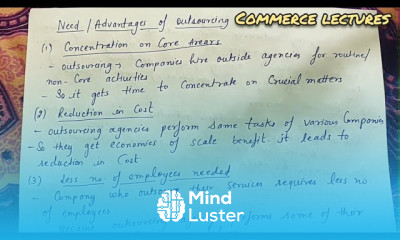 Need / Advantages of outsourcing
COMMERCE LECTURES
(1) Concentration on Core Areas
- outsourcing → Companies hire outside agencies for routine/
non-core activities
- So it gets time to concentrate on Crucial matters
(2) Reduction in Cost
- outsourcing agencies perform same tasks of various Companies
- So they get economies of scale benefit. it leads to
reduction in Cost
(3) Less no. of employees needed
- Company who outsource their services requires less no
of employees
some of their
Mind
Luster